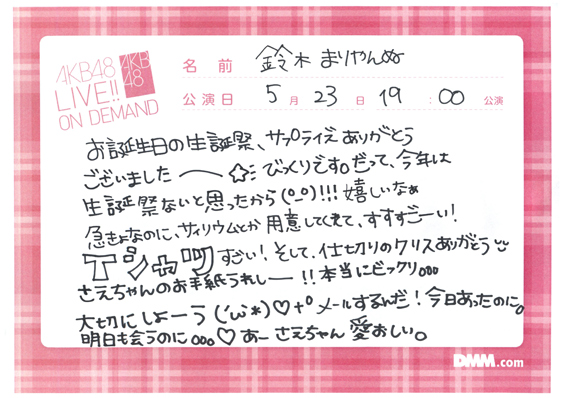 AKB48
LIVE!!
ON DEMAND
AKB
48
名前 鈴木まりやんぬ
公演日 5月23日 19:00公演
お誕生日の生誕祭、サプライズありがとう
ございましたー☆ミびっくりです。だって、今年は
生誕祭ないと思ったから(°_°)!!!嬉しいなぁ
急きょなのに、サイリウムとか用意してくれて、すすすごーい!
Tシャツすごい!そして、仕切りのクリスありがとう
さえちゃんのお手紙うれしー!!本当にビックリ。。。
大切にしよーう(´ω`*)♡+° メールするんだ!今日あったのに。
明日も会うのに。。。♡あーさえちゃん愛おしい。
DMM.com